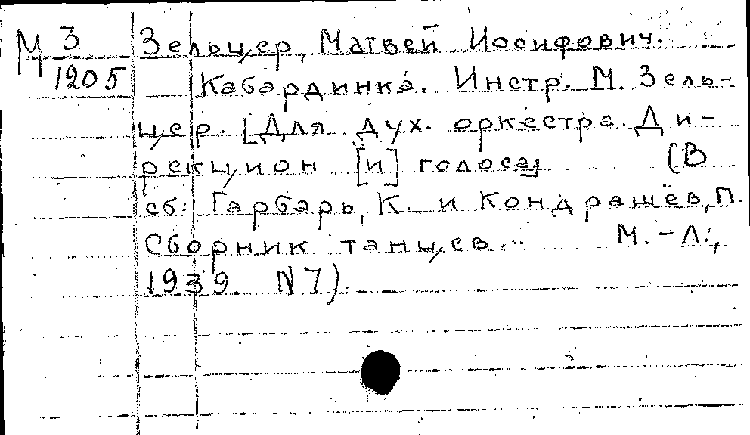 М З/1205 Зельцер, Матвей Иосифович.
Кабардинка. Инстр. М. Зель-
цер. [Для дух. оркестра. Ди-
рекцион [и] голоса] (В
сб: Гарбарь, К. и Кондрашёв, П.
Сборник танцев... М.-Л.,
1939 N7).